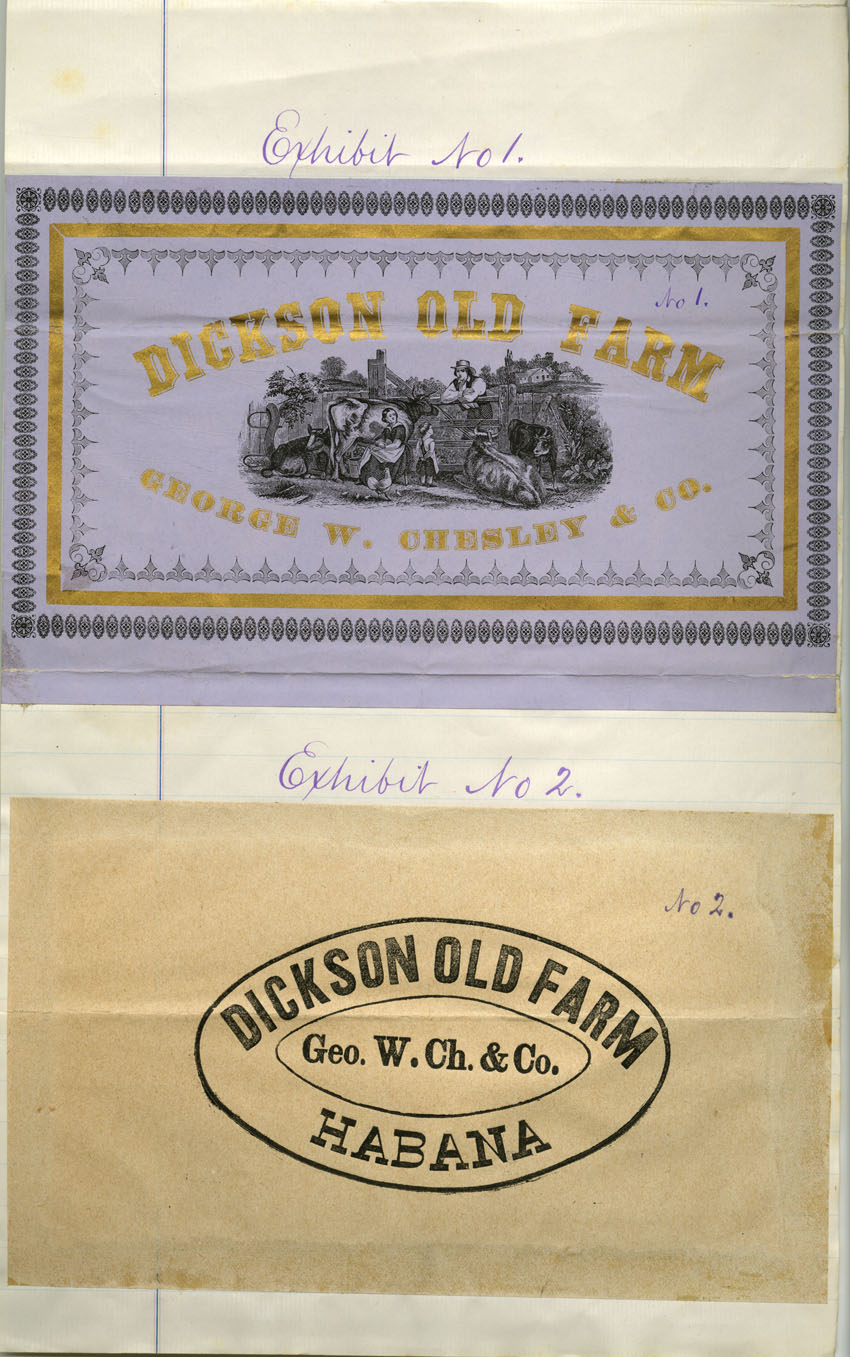 Exhibit No 1.
No 1.
DICKSON OLD FARM
GEORGE W. CHESLEY & CO.
Exhibit No 2.
No 2.
DICKSON OLD FARM
Geo. W. Ch. & Co.
HABANA